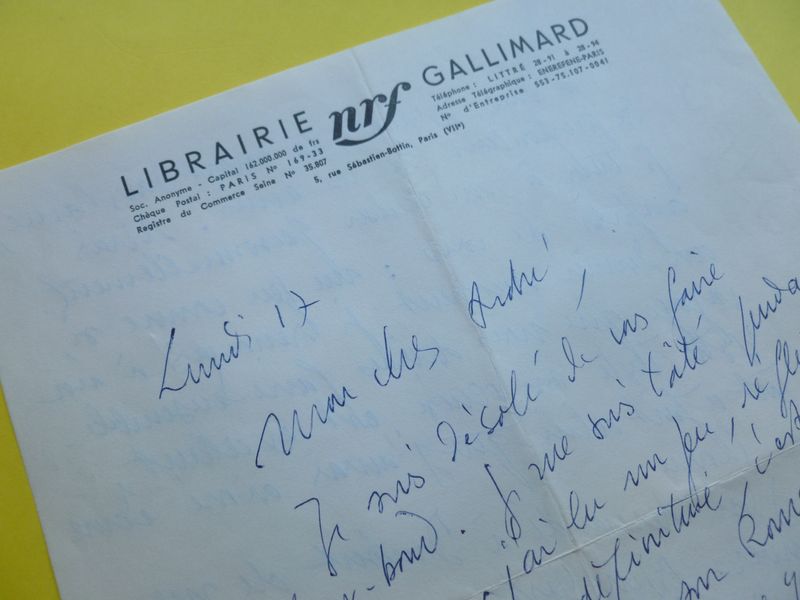 LIBRAIRIE nrf GALLIMARD
Soc. Anonyme - Capital 162.000.000 de frs
Chèque Postal : PARIS Nº 169-33
Registre du Commerce Seine Nº 35.807
Téléphone : LITTRÉ 28-91 à 28-94
Adresse Télégraphique : ENEREFENE-PARIS
Nº d'Entreprise 553-75.107-0041
5, rue Sébastien-Bottin, Paris (VIIᵉ)
Lundi 17
Mon cher André,
Je suis désolé de vous faire
-bond. Je me suis tâté
j'ai lu un peu, réflé
définitive, c'est
son